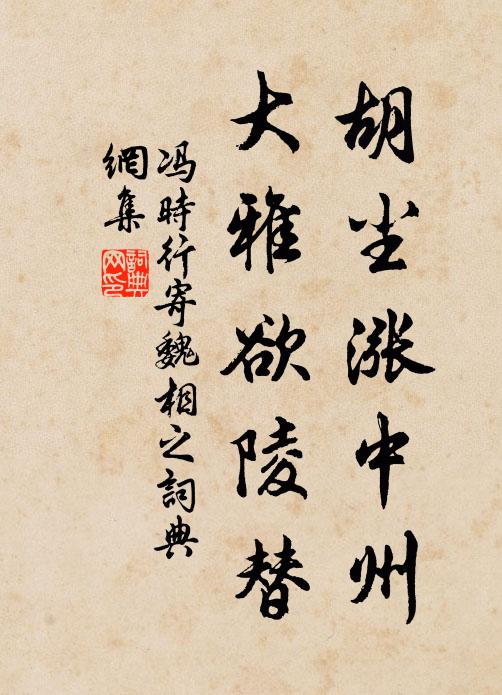 胡尘漲中州
大雅欲陵替
冯時行寄魏相之詞典
網集
詞典
网印